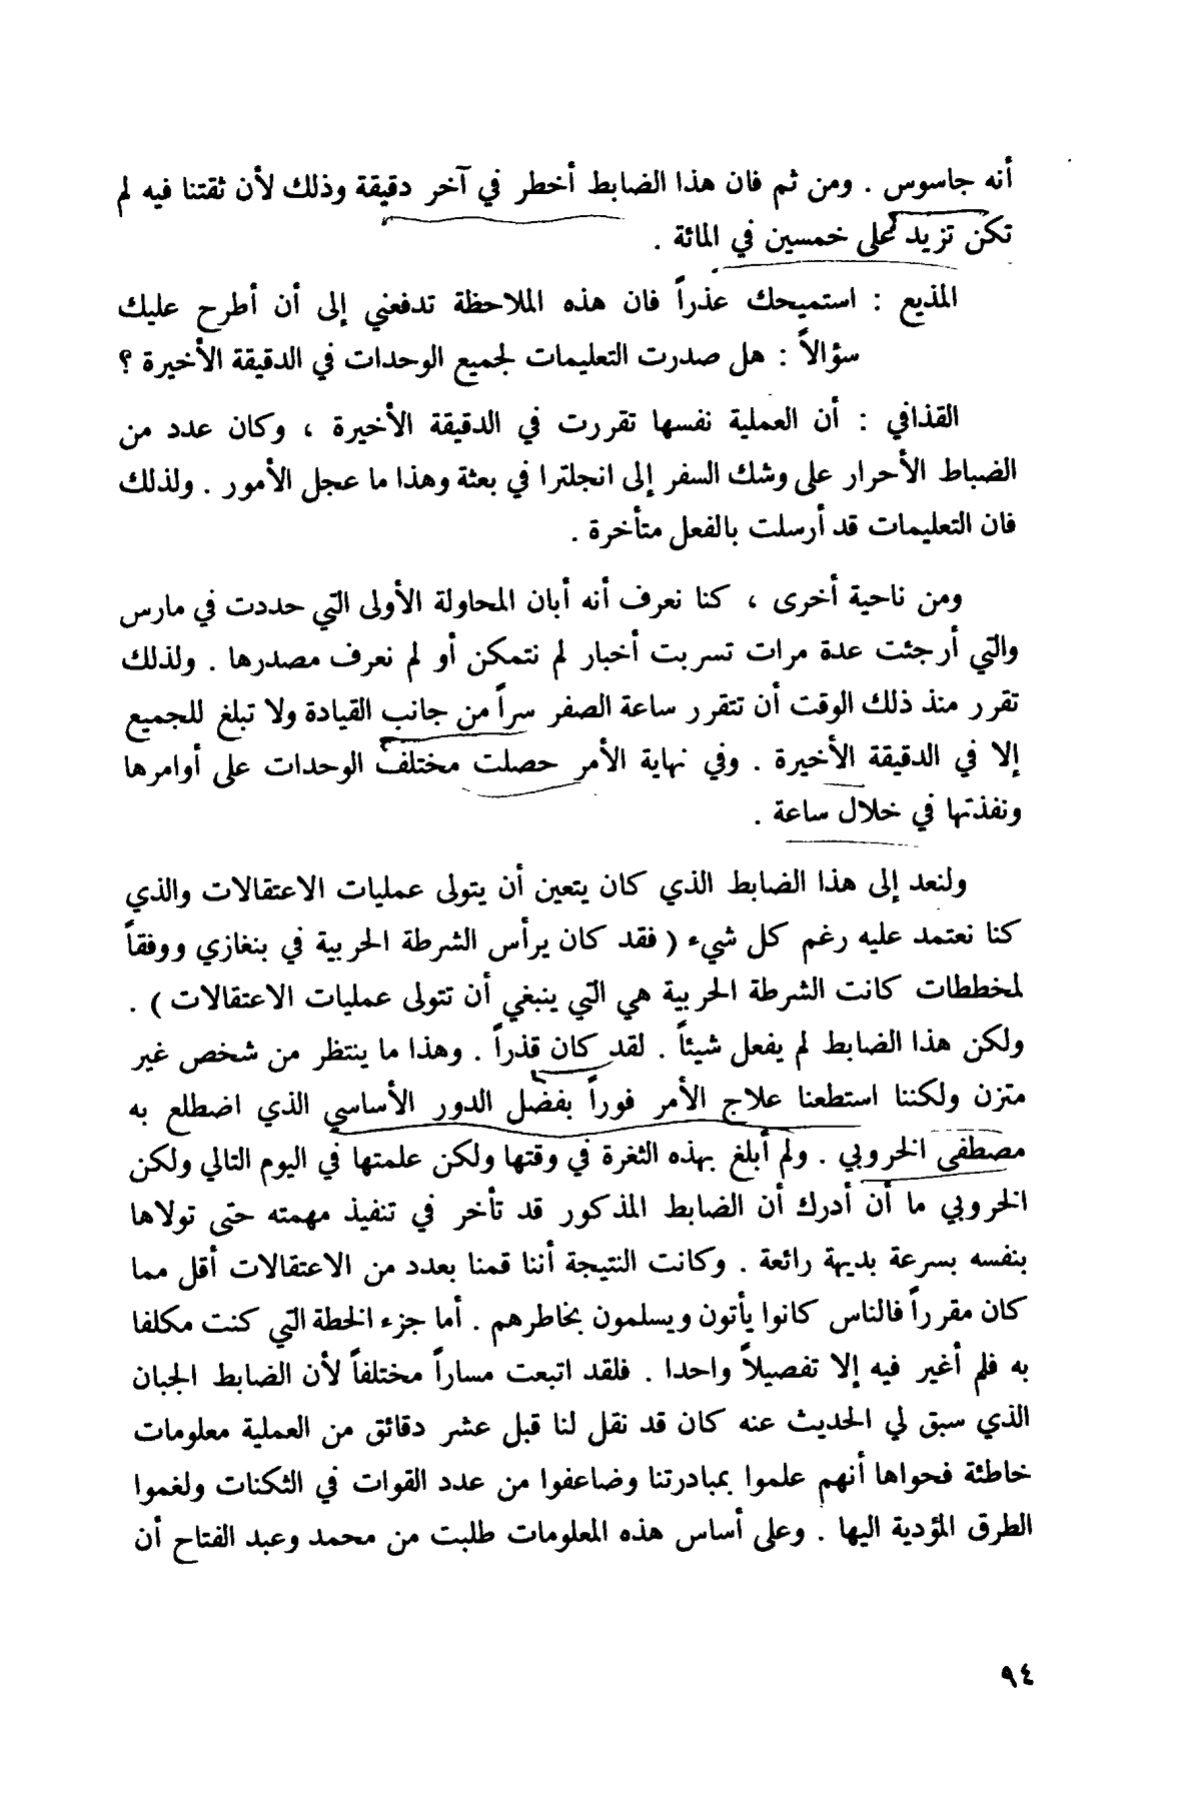 أنه جاسوس . ومن ثم فان هذا الضابط أخطر في آخر دقيقة وذلك لأن ثقتنا فيه لم
تكن تزيد على خمسين في المائة .
المذيع : استميحك عذراً فان هذه الملاحظة تدفعني إلى أن أطرح عليك
سؤالاً : هل صدرت التعليمات لجميع الوحدات في الدقيقة الأخيرة ؟
القذافي : أن العملية نفسها تقررت في الدقيقة الأخيرة ، وكان عدد من
الضباط الأحرار على وشك السفر إلى انجلترا في بعثة وهذا ما عجل الأمور . ولذلك
فان التعليمات قد أرسلت بالفعل متأخرة .
ومن ناحية أخرى ، كنا نعرف أنه أبان المحاولة الأولى التي حددت في مارس
والتي أرجئت عدة مرات تسربت أخبار لم نتمكن أو لم نعرف مصدرها . ولذلك
تقرر منذ ذلك الوقت أن تتقرر ساعة الصفر سراً من جانب القيادة ولا تبلغ للجميع
إلا في الدقيقة الأخيرة . وفي نهاية الأمر حصلت مختلف الوحدات على أوامرها
ونفذتها في خلال ساعة .
ولنعد إلى هذا الضابط الذي كان يتعين أن يتولى عمليات الاعتقالات والذي
كنا نعتمد عليه رغم كل شيء ( فقد كان يرأس الشرطة الحربية في بنغازي ووفقاً
لمخططات كانت الشرطة الحربية هي التي ينبغي أن تتولى عمليات الاعتقالات ) .
ولكن هذا الضابط لم يفعل شيئاً . لقد كان قذراً . وهذا ما ينتظر من شخص غير
متزن ولكننا استطعنا علاج الأمر فوراً بفضل الدور الأساسي الذي اضطلع به
مصطفى الخروبي . ولم أبلغ بهذه الثغرة في وقتها ولكن علمتها في اليوم التالي ولكن
الخروبي ما أن أدرك أن الضابط المذكور قد تأخر في تنفيذ مهمته حتى تولاها
بنفسه بسرعة بديهة رائعة . وكانت النتيجة أننا قمنا بعدد من الاعتقالات أقل مما
كان مقرراً فالناس كانوا يأتون ويسلمون بخاطرهم . أما جزء الخطة التي كنت مكلفا
به فلم أغير فيه إلا تفصيلاً واحدا . فلقد اتبعت مساراً مختلفاً لأن الضابط الجبان
الذي سبق لي الحديث عنه كان قد نقل لنا قبل عشر دقائق من العملية معلومات
خاطئة فحواها أنهم علموا بمبادرتنا وضاعفوا من عدد القوات في الثكنات ولغموا
الطرق المؤدية اليها . وعلى أساس هذه المعلومات طلبت من محمد وعبد الفتاح أن
٩٤